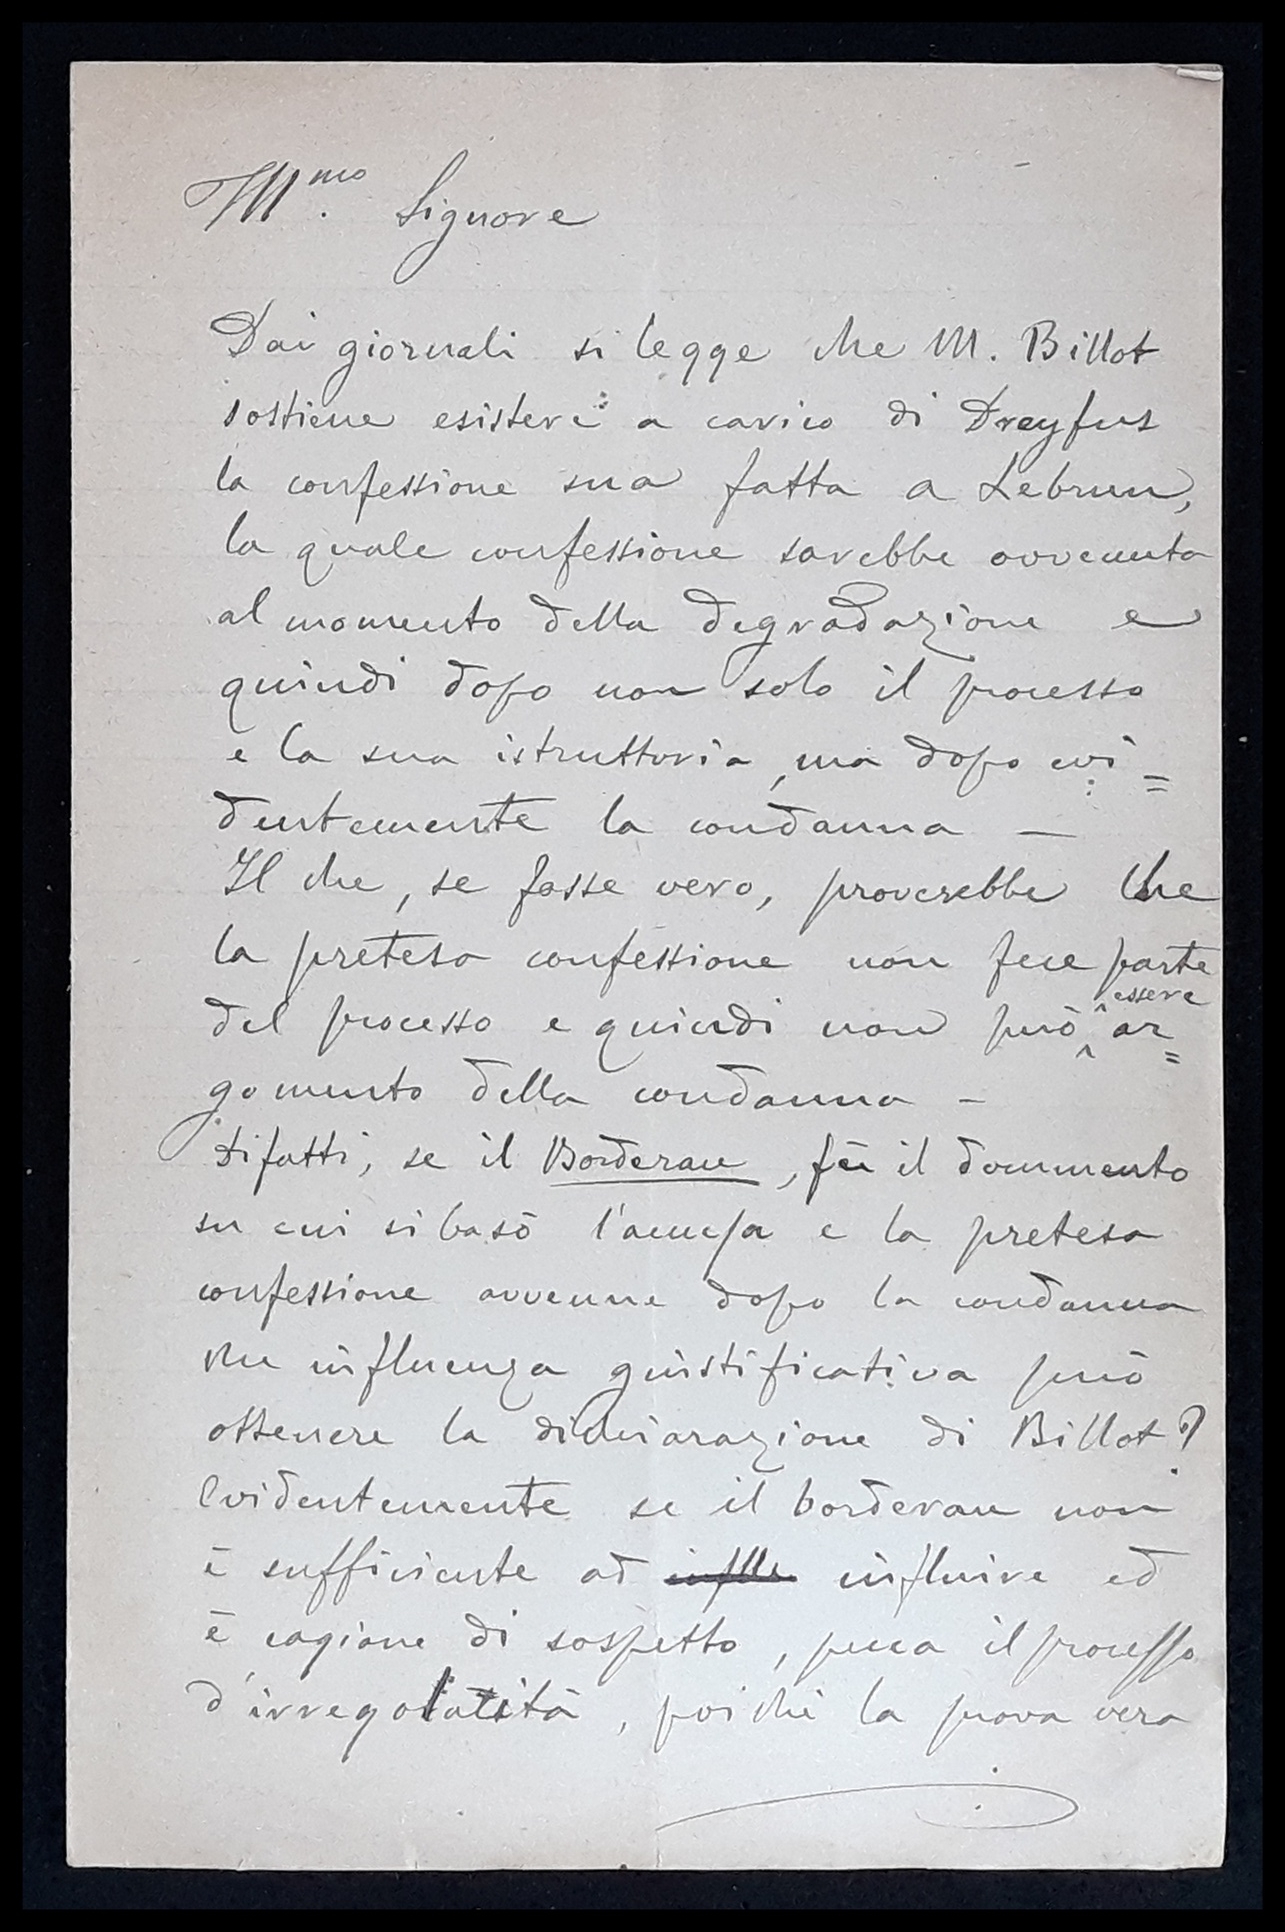 Ill.mo Signore
Dai giornali si legge che M. Billot
sostiene esistere a carico di Dreyfus
la confessione sua fatta a Lebrun,
la quale confessione sarebbe avvenuta
al momento della degradazione e
quindi dopo non solo il processo
e la sua istruttoria, ma dopo evi=
dentemente la condanna —
Il che, se fosse vero, proverebbe che
la pretesa confessione non fece parte
del processo e quindi non può essere ar=
gomento della condanna –
Difatti, se il Borderau, fu il documento
su cui si basò l'accusa e la pretesa
confessione avvenne dopo la condanna
che influenza giustificativa può
ottenere la dichiarazione di Billot?
Evidentemente se il borderau non
è sufficiente ad influire ed
è cagione di sospetto, pecca il processo
d'irregolarità, poichè la prova vera